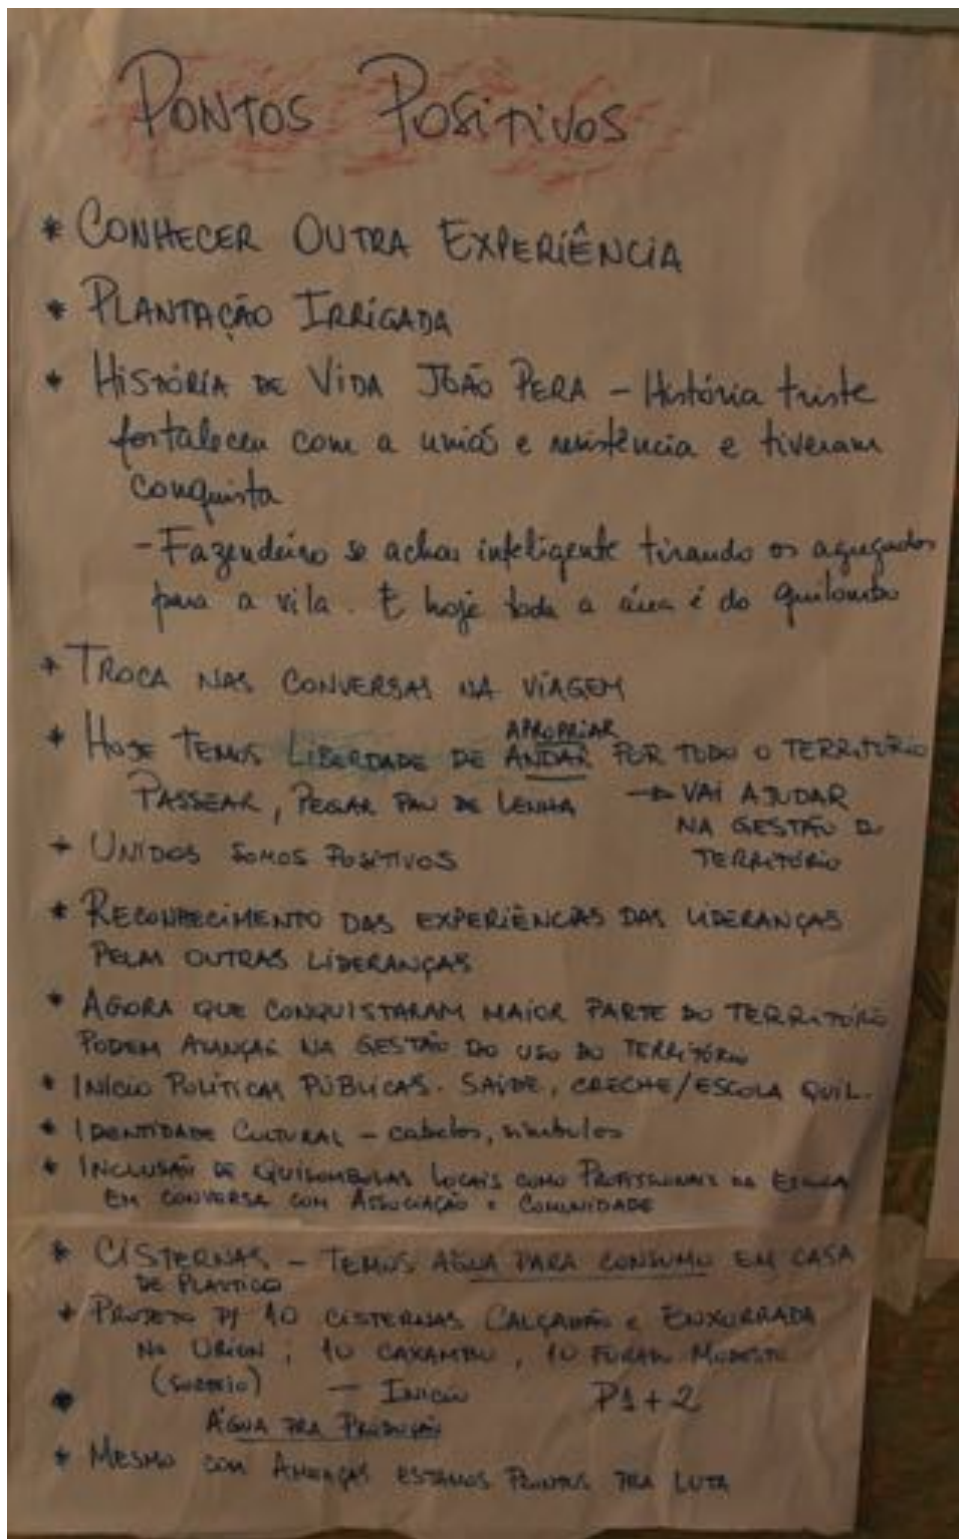 PONTOS POSITIVOS
* CONHECER OUTRA EXPERIÊNCIA
* PLANTAÇÃO IRRIGADA
* HISTÓRIA DE VIDA JOÃO PERA - História triste
fortaleceu com a união e resistência e tiveram
conquista
- Fazendeiro se achou inteligente tirando os agregados
para a vila. E hoje toda a área é do quilombo
* TROCA NAS CONVERSAS NA VIAGEM
APROPRIAR
* HOJE TEMOS LIBERDADE DE ANDAR POR TODO O TERRITÓRIO
PASSEAR, PEGAR PAU DE LENHA → VAI AJUDAR
NA GESTÃO D
* UNIDOS SOMOS POSITIVOS TERRITÓRIO
* RECONHECIMENTO DAS EXPERIÊNCIAS DAS LIDERANÇAS
PELAS OUTRAS LIDERANÇAS
* AGORA QUE CONQUISTARAM MAIOR PARTE DO TERRITÓRIO
PODEM AVANÇAR NA GESTÃO DO USO DO TERRITÓRIO
* INÍCIO POLÍTICAS PÚBLICAS. SAÚDE, CRECHE/ESCOLA QUIL.
* IDENTIDADE CULTURAL - cabelos, símbolos
* INCLUSÃO DE QUILOMBOLAS LOCAIS COMO PROFISSIONAIS NA ESCOLA
EM CONVERSA COM ASSOCIAÇÃO E COMUNIDADE
* CISTERNAS - TEMOS ÁGUA PARA CONSUMO EM CASA
DE PLASTICO
* PROJETO P/ 10 CISTERNAS CALÇADÃO E ENXURRADA
NO, 10 CAXAMBU, 10 FURADO MODESTO
(SORTEIO) - INICIO P1+2
*
ÁGUA PRA PRODUÇÃO
* MESMO COM AMEAÇAS ESTAMOS PRONTOS PRA LUTA